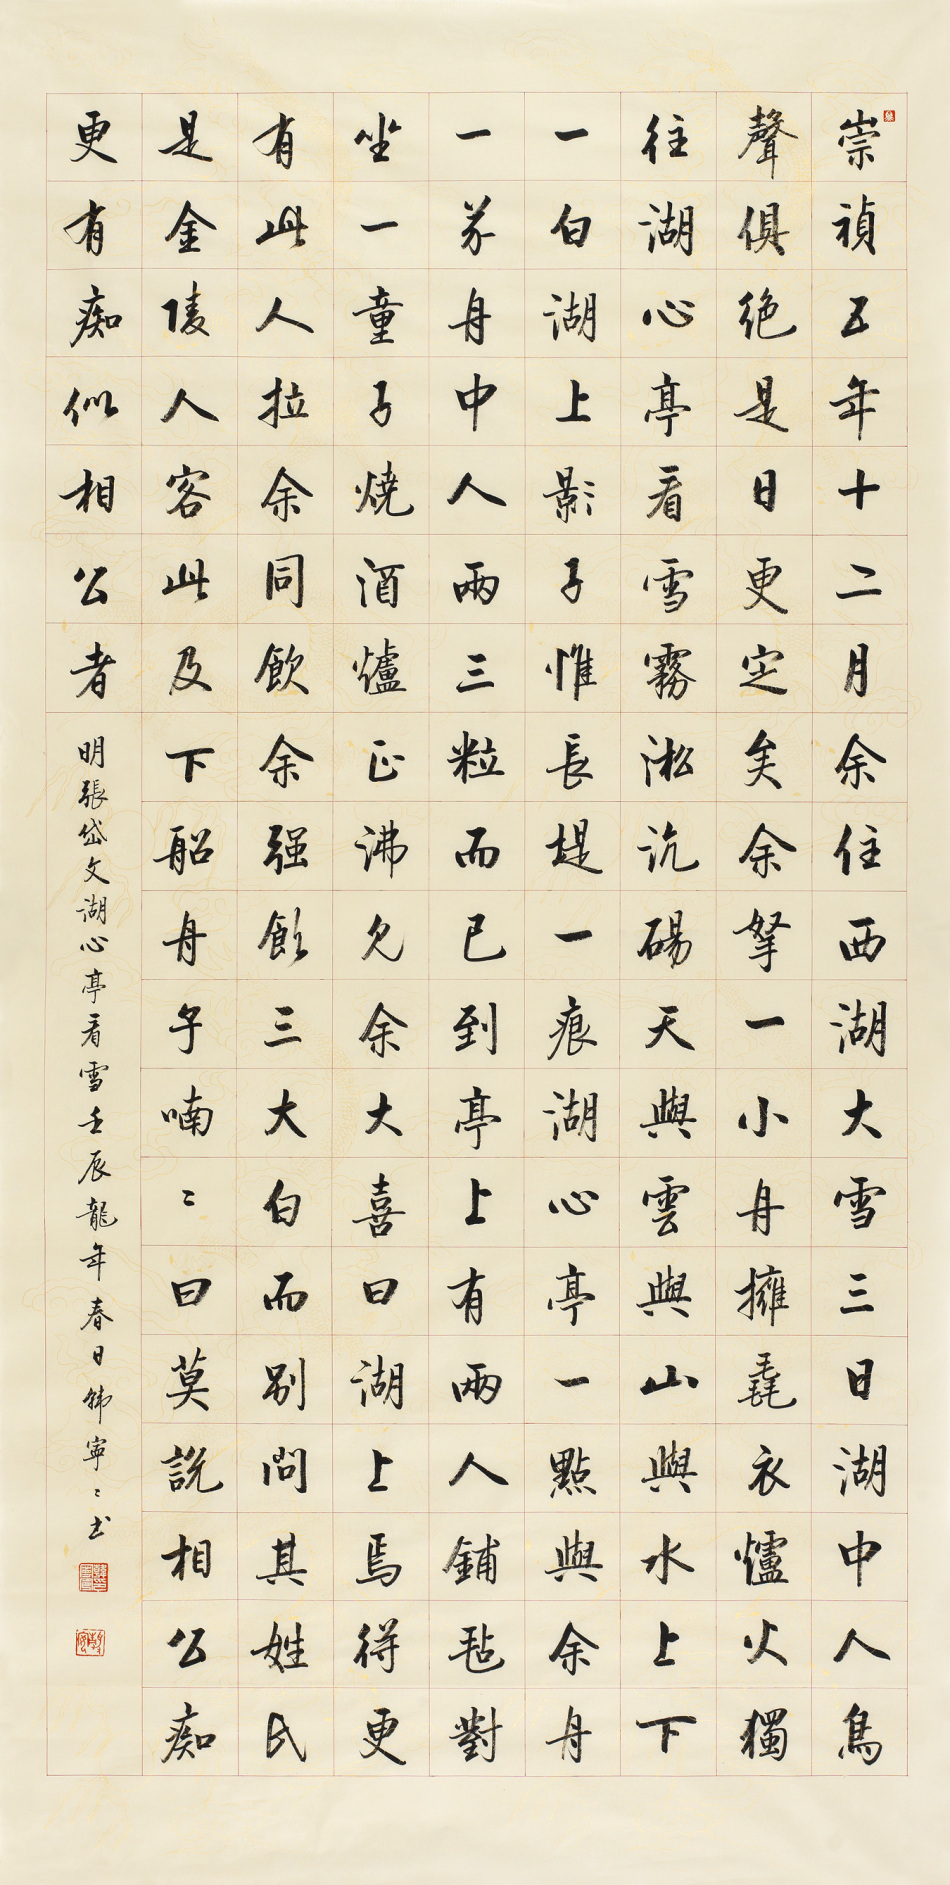 崇禎五年十二月余住西湖大雪三日湖中人鳥
聲俱绝是日更定矣余拏一小舟擁毳衣爐火獨
往湖心亭看雪霧淞沆碭天與雲與山與水上下
一白湖上影子惟長堤一痕湖心亭一點與余舟
一芥舟中人兩三粒而已到亭上有兩人鋪毡對
坐一童子燒酒爐正沸見余大喜曰湖上焉得更
有此人拉余同飲余强飲三大白而别問其姓氏
是金陵人客此及下船舟子喃〻曰莫説相公痴
更有痴似相公者
明張岱文湖心亭看雪壬辰龍年春日韩寧〻书